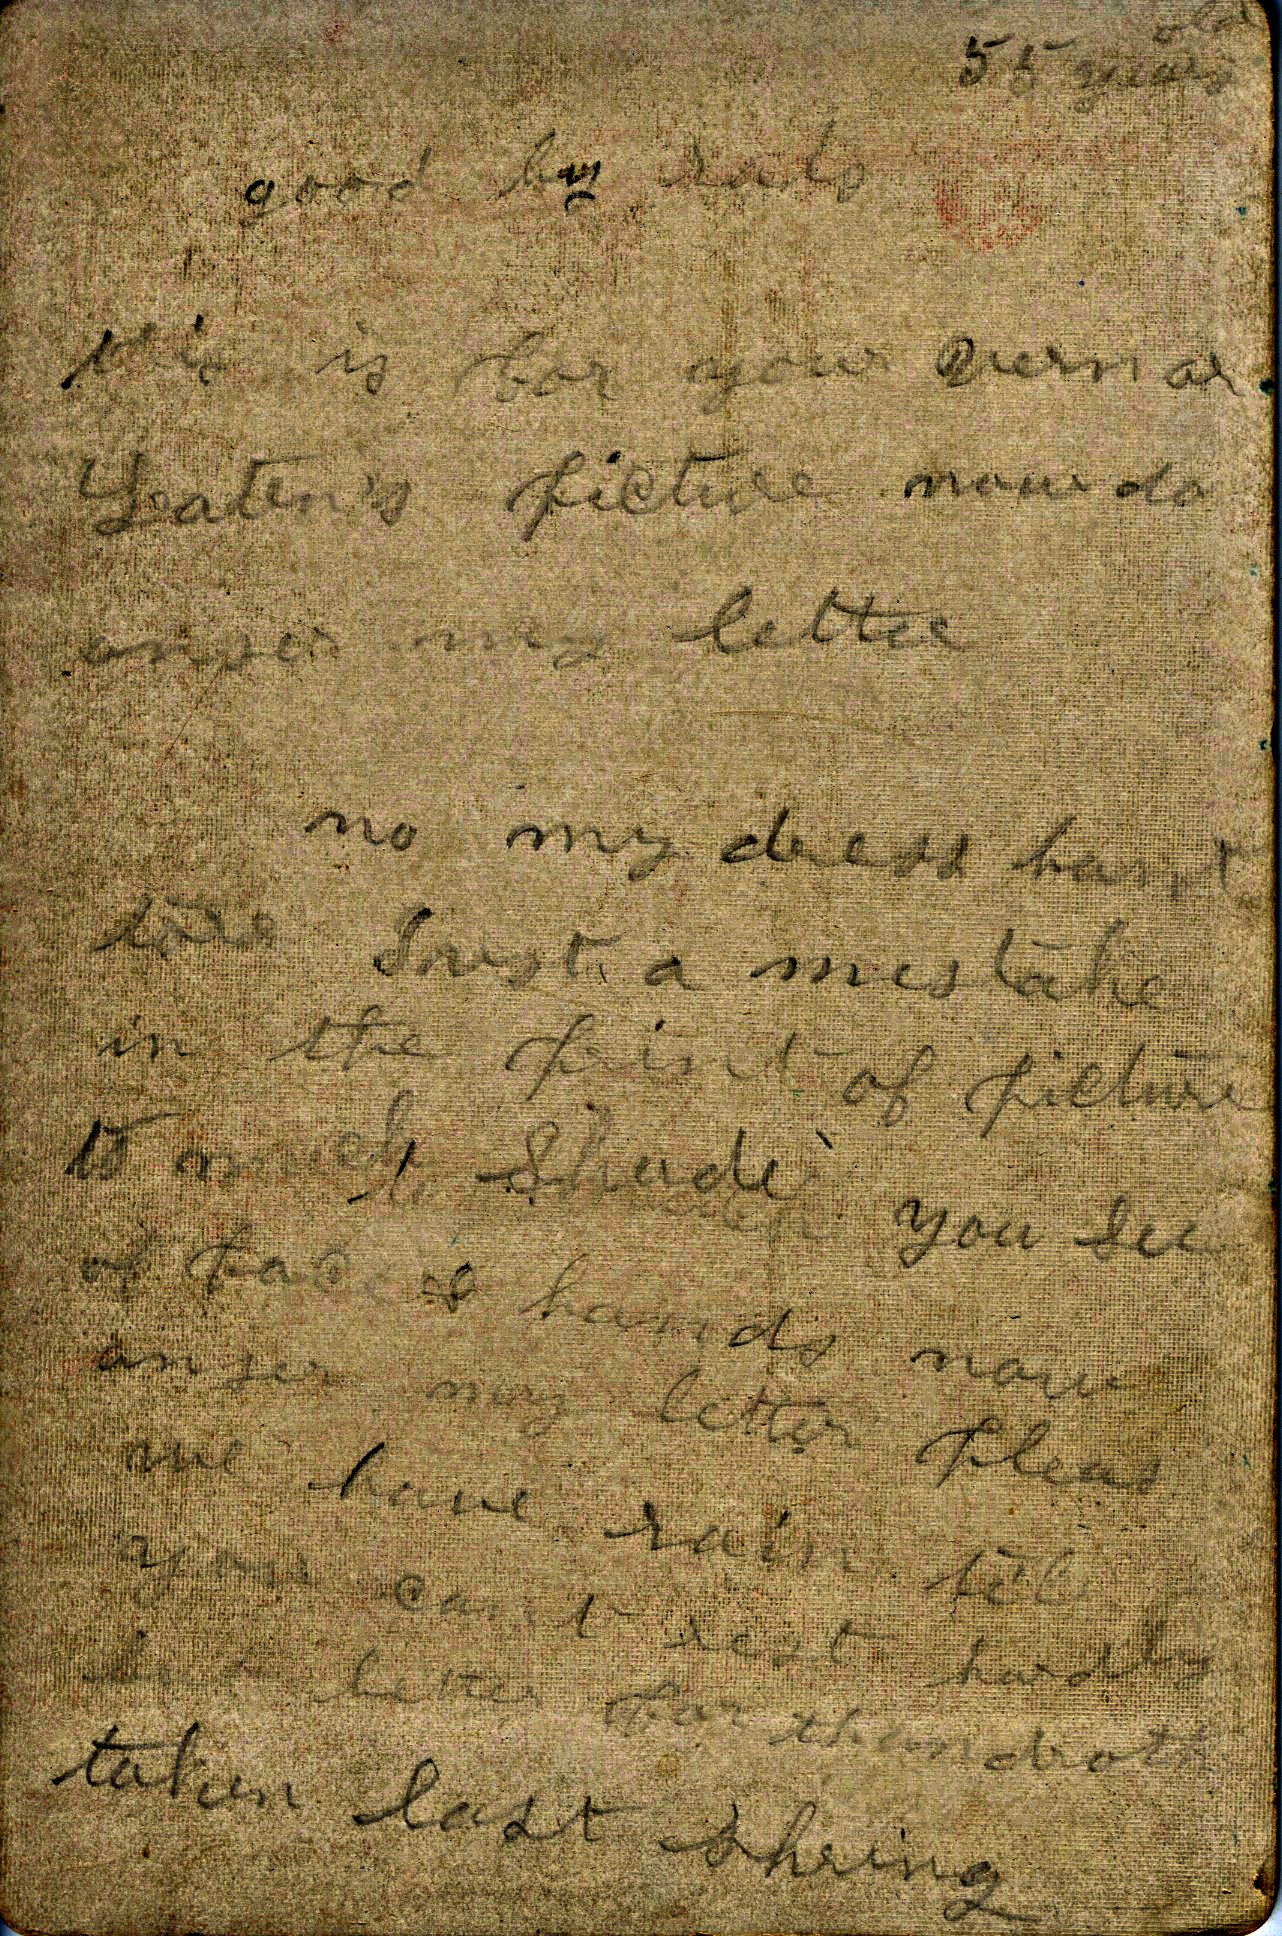 old
55 years
good by
this is for your Vernar
Yeaten's picture now do
anser my letter
no my dress hant
tore Just a mistake
in the print of picture
to much Shade you see
of face & hands now
anser my letter pleas
we have rain till
you cant rest hardly
but better far than droth
taken last Spring